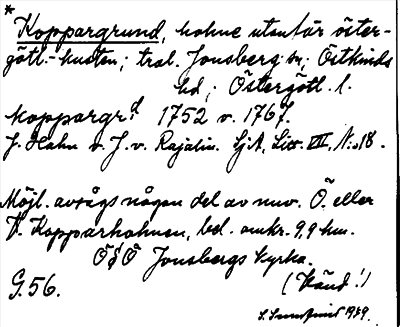 * Koppargrund, holme utanför öster-
götl.-kusten; trol. Jonsberg sn, Östkinds
hd, Östergötl. l.
koppargr:d 1752 v. 1767.
J. Hahn o. J. v. Rajalin. SjA, Litt. VIII, N:o 18.
Möjl. avsågs någon del av nuv. Ö. eller
V. Kopparholmen, bel. omkr. 9,9 km.
ÖSÖ Jonsbergs kyrka.
G. 56. (Känd!)
1949.